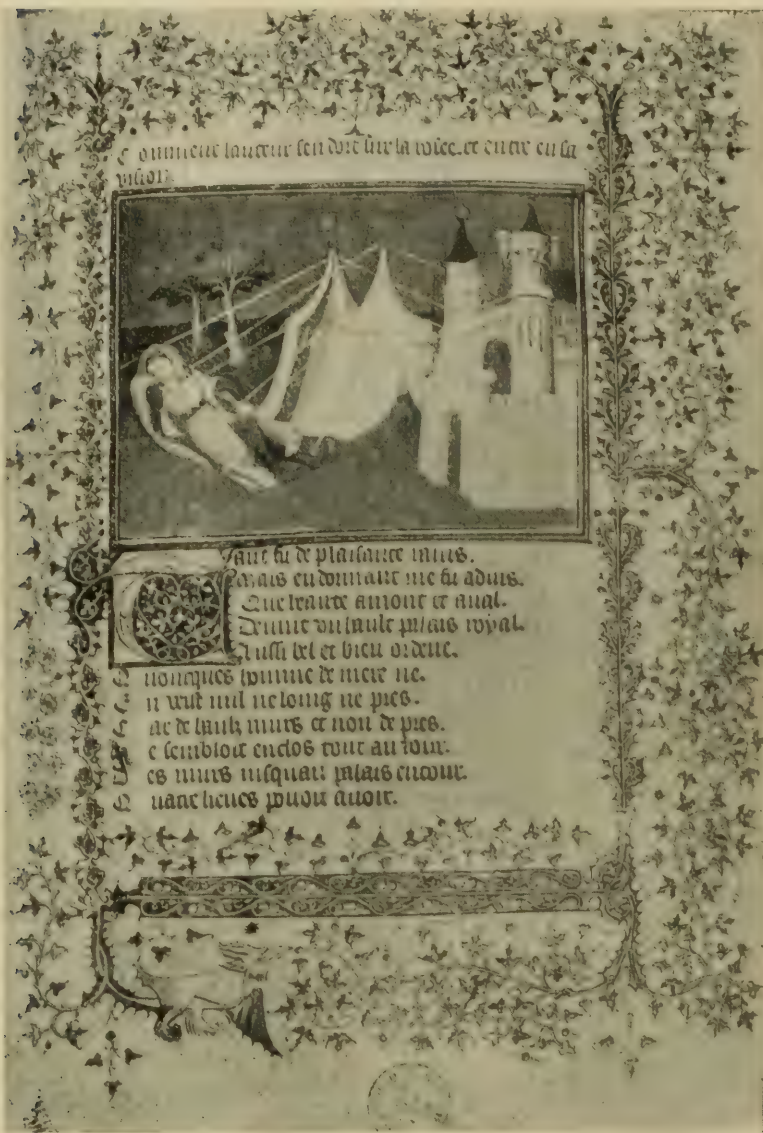 Comment lauteur sen dort sur la et entre en sa
vision
fu de plaisance
mais en dormant me fu aduis.
Que amont et aual.
royal.
Aussi bel et bien ordene.
noncques homme de mere ne.
n veist nul ne loing ne pres.
ar de haulz murs et non de pres.
e sembloit enclos tout au tour.
es murs iusquau palais entour.
Quatre lieues pouoit auoir.